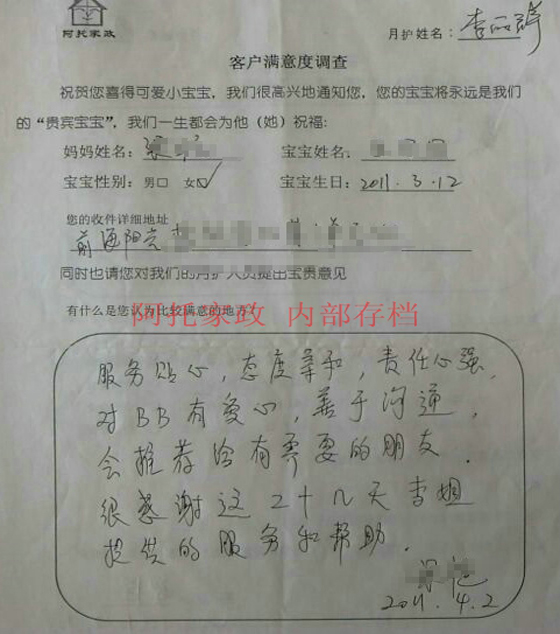 阿托家政
月护姓名：李丽
客户满意度调查
祝贺您喜得可爱小宝宝，我们很高兴地通知您，您的宝宝将永远是我们
的“贵宾宝宝”，我们一生都会为他（她）祝福：
妈妈姓名： 宝宝姓名：
宝宝性别：男□ 女☑ 宝宝生日：2011.3.12
您的收件详细地址
前海阳光
同时也请您对我们的月护人员提出宝贵意见
有什么是您认为比较满意的地方？
阿托家政 内部存档
服务贴心，态度亲和，责任心强，
对BB有爱心，善于沟通，
会推荐给有需要的朋友．
很感谢这二十几天李姐
提供的服务和帮助．
2011.4.2